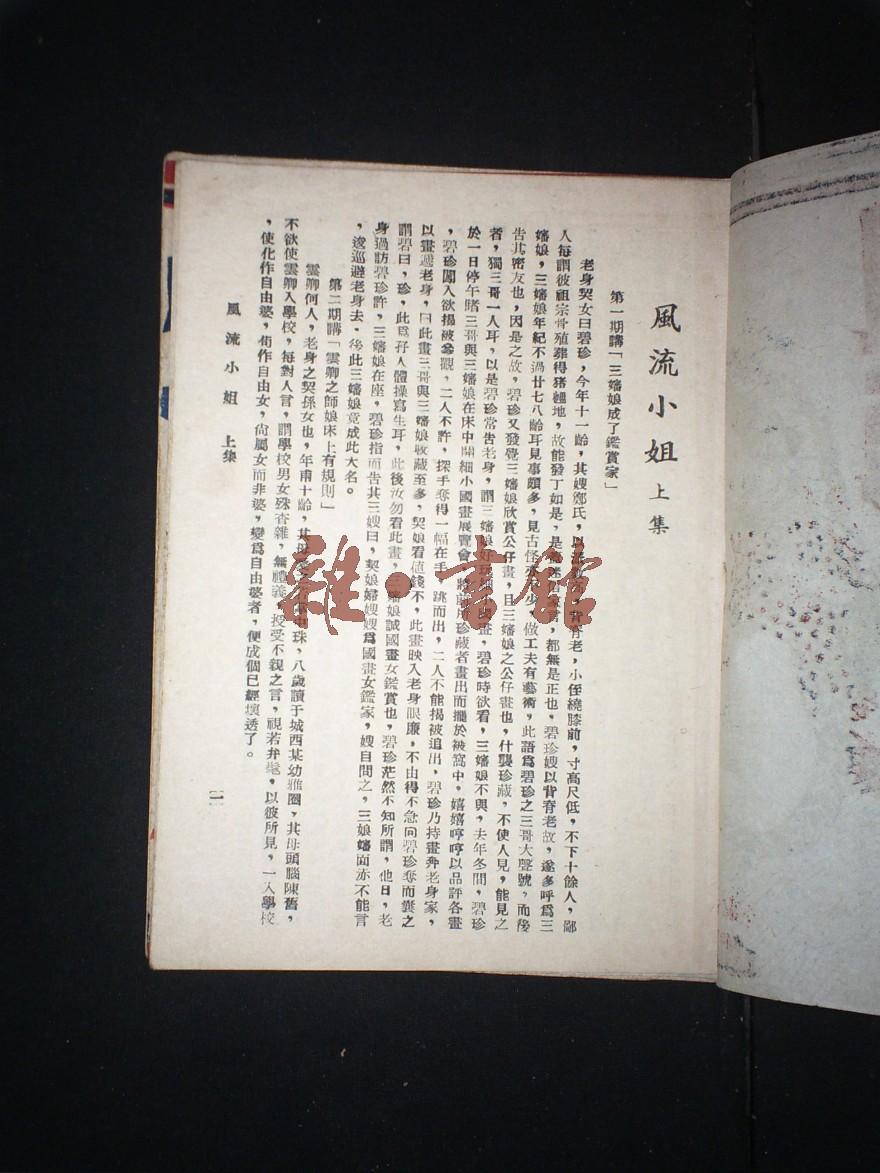 風流小姐 上集
第一期講「三嬸娘成了鑑賞家」
老身契女曰碧珍，今年十一齡，其嫂鄭氏，以背脊老，小侄繞膝前，寸高尺低，不下十餘人，鄙
人每謂彼祖宗骨殖葬得猪乸地，故能發丁如是，是，都無是正也，碧珍嫂以背脊老故，遂多呼爲三
嬸娘，三嬸娘年紀不過廿七八齡耳見事頗多，見古怪少，做工夫有藝術，此語爲碧珍之三哥大聲號，而後
告其密友也，因是之故，碧珍又發覺三嬸娘欣賞公仔畫，且三嬸娘之公仔畫也，什襲珍藏，不使人見，能見之
者，獨三哥一人耳，以是碧珍常告老身，謂三嬸娘好玩國畫，碧珍時欲看，三嬸娘不與，去年冬間，碧珍
於一日停午睹三哥與三嬸娘在床中開細小國畫展覽會，將前所珍藏者畫出而擺於被窩中，嬉嬉哼哼以品評各畫
，碧珍闖入欲揭被參觀，二人不許，探手奪得一幅在手，跳而出，二人不能揭被追出，碧珍乃持畫奔老身家，
以畫遞老身，曰此畫三哥與三嬸娘收藏至多，契娘看値錢不，此畫映入老身眼廉，不由得不急向碧珍奪而囊之
謂碧曰，珍，此爲孖人體操寫生耳，此後汝勿看此畫，三嬸娘誠國畫女鑑賞也，碧珍茫然不知所謂，他日，老
身過訪碧珍許，三嬸娘在座，碧珍指而告其三嫂曰，契娘謂嫂嫂爲國畫女鑑家，嫂自問之，三娘嬸面赤不能言
，逡巡避老身去，後此三嬸娘竟成此大名。
第二期講「雲卿之師娘床上有規則」
雲卿何人，老身之契孫女也，年甫十齡，其母中珠，八歲讀于城西某幼稚園，其母頭腦陳舊，
不欲使雲卿入學校，每對人言，謂學校男女殊杳雜，無禮義，授受不親之言，視若弁髦，以彼所見，一入學校
，使化作自由婆，荀作自由女，尙屬女而非婆，變爲自由婆者，便成個已經壞透了。
風流小姐 上集
雜·書館